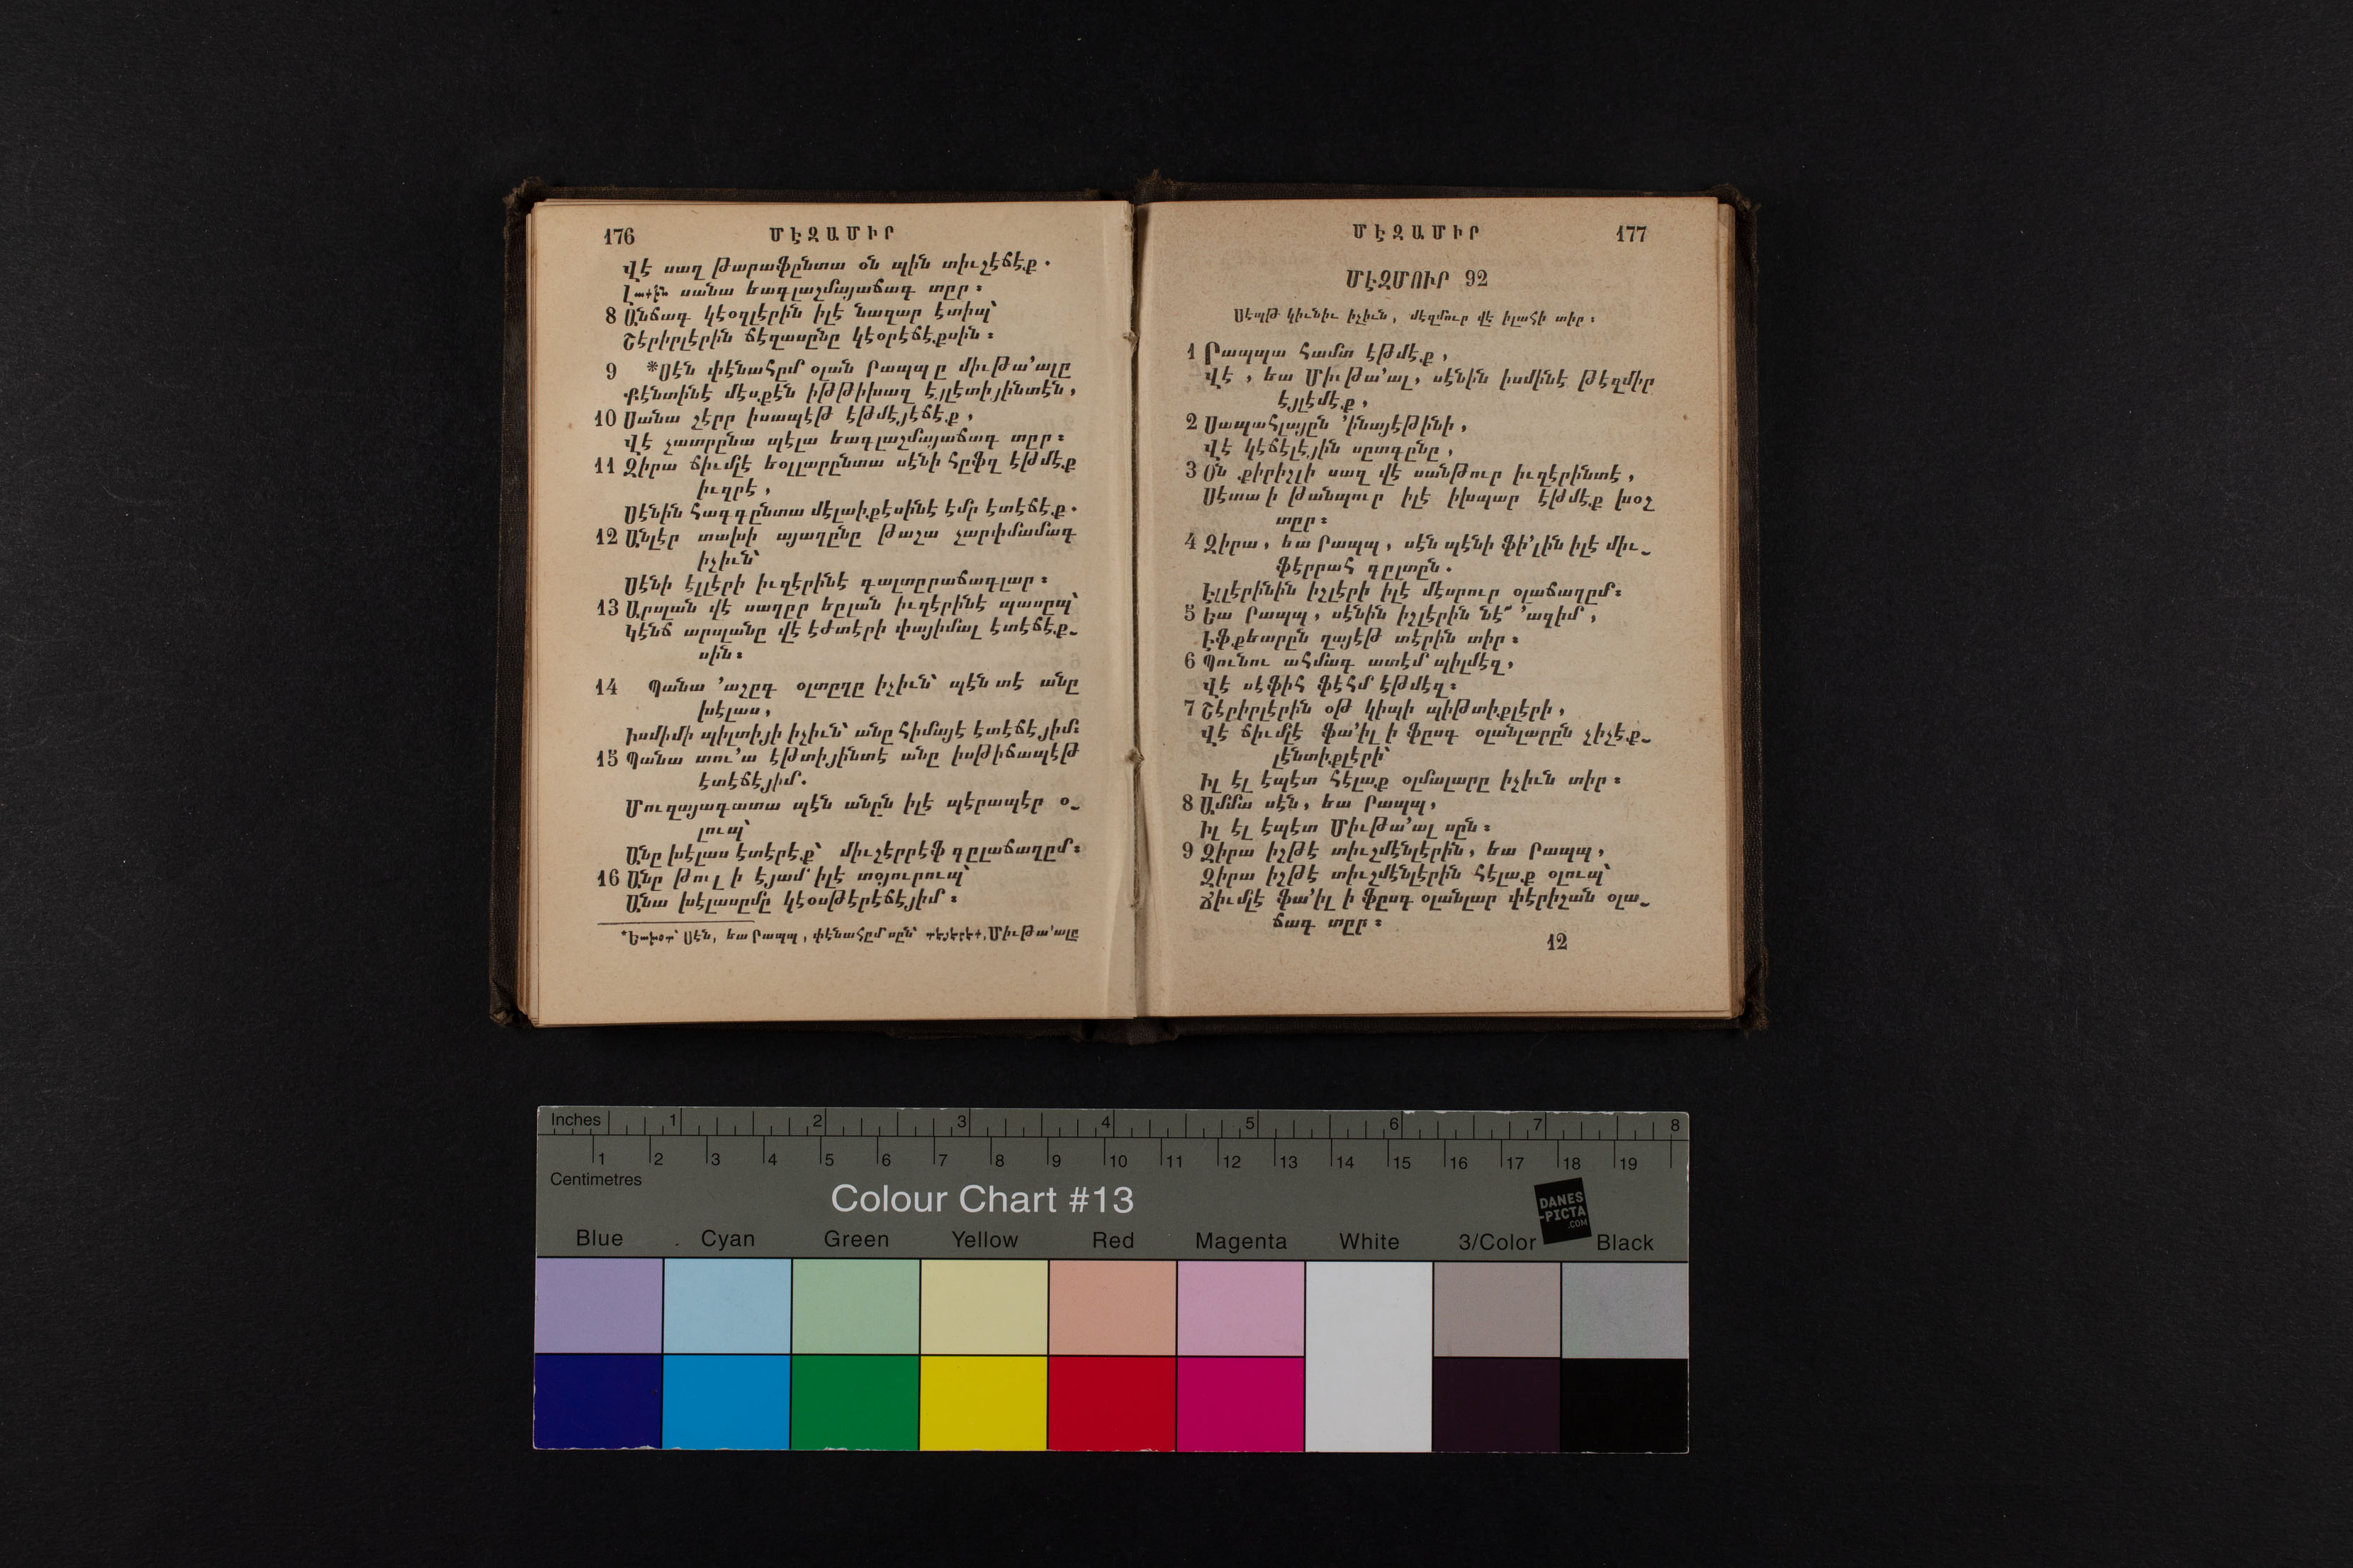 176 ՄԷԶԱՄԻՐ
Վէ սաղ թարաֆընտա օն պին տիւշէճէք.
Լաքին սանա եագլաշմայաճագ տըր։
8 Անճագ կէօզլէրին իլէ նազար էտիպ՝
Շէրիրլէրին ճէզասընը կէօրէճէքսին։
9 *Սէն փէնահըմ օլան Րապպը միւթա՚ալը
Քէնտինէ մէսքէն իթթիխազ էյլէտիյինտէն,
10 Սանա շէրր իսապէթ էթմէյէճէք,
Վէ չատըրընա պէլա եագլաշմայաճագ տըր։
11 Զիրա ճիւմլէ եօլլարընտա սէնի հըֆզ էթմէք
իւզրէ,
Սէնին հագգընտա մէլաիքէսինէ էմր էտէճէք.
12 Անլէր տախի այաղընը թաշա չարփմամագ
իչիւն՝
Սէնի էլլէրի իւզէրինէ գալտըրաճագլար։
13 Արսլան վէ սաղըր եըլան իւզէրինէ պասըպ՝
Կէնճ արսլանը վէ էժտէրի փայիմալ էտէճէք֊
սին։
14 Պանա ՚աշըգ օլտըղը իչիւն՝ պէն տէ անը
խէլաս,
Իսմիմի պիլտիյի իչիւն՝ անը հիմայէ էտէճէյիմ։
15 Պանա տու՚ա էթտիյինտէ անը իսթիճապէթ
էտէճէյիմ.
Մուզայագատա պէն անըն իլէ պէրապէր օ֊
լուպ՝
Անը խէլաս էտէրէք՝ միւշէրրէֆ գըլաճաղըմ։
16 Անը թուլ ի էյամ իլէ տօյուրուպ՝
Անա խէլասըմը կէօսթէրէճէյիմ։
*Եախօտ՝ Սէն, եա Րապպ, փէնահըմ սըն՝ տէյէրէք, Միւթա՚ալը
ՄԷԶԱՄԻՐ 177
ՄԷԶՄՈՒՐ 92
Սէպթ կիւնիւ իչիւն, մէզմուր վէ իլահի տիր։
1 Րապպա համտ էթմէք,
Վէ, եա Միւթա՚ալ, սէնին իսմինէ թէզմիր
էյլէմէք,
2 Սապահլայըն ՚ինայէթինի,
Վէ կէճէլէյին սըտգընը,
3 Օն քիրիշլի սազ վէ սանթուր իւզէրինտէ,
Սէտա ի թանպուր իլէ իխպար էթմէք խօշ
տըր։
4 Զիրա, եա Րապպ, սէն պէնի ֆի՚լին իլէ միւ֊
ֆէրրահ գըլտըն.
Էլլէրինին իշլէրի իլէ մէսրուր օլաճաղըմ։
5 Եա Րապպ, սէնին իշլէրին նէ՞ ՚ազիմ,
Էֆքեարըն ղայէթ տէրին տիր։
6 Պունու ահմագ ատէմ պիլմէզ,
Վէ սէֆիհ ֆէհմ էթմէզ։
7 Շէրիրլէրին օթ կիպի պիթտիքլէրի,
Վէ ճիւմլէ ֆա՚իլ ի ֆըսգ օլանլարըն չիչէք֊
լէնտիքլէրի՝
Իլ էլ էպէտ հէլաք օլմալարը իչիւն տիր։
8 Ամմա սէն, եա Րապպ,
Իլ էլ էպէտ Միւթա՚ալ սըն։
9 Զիրա իշթէ տիւշմէնլէրին, եա Րապպ,
Զիրա իշթէ տիւշմէնլէրին հէլաք օլուպ՝
Ճիւմլէ ֆա՚իլ ի ֆըսգ օլանլար փէրիշան օլա֊
ճագ տըր։
12
Inches 1 2 3 4 5 6 7 8
1 2 3 4 5 6 7 8 9 10 11 12 13 14 15 16 17 18 19
Centimetres
Colour Chart #13
DANES
-PICTA
.COM
Blue Cyan Green Yellow Red Magenta White 3/Color Black